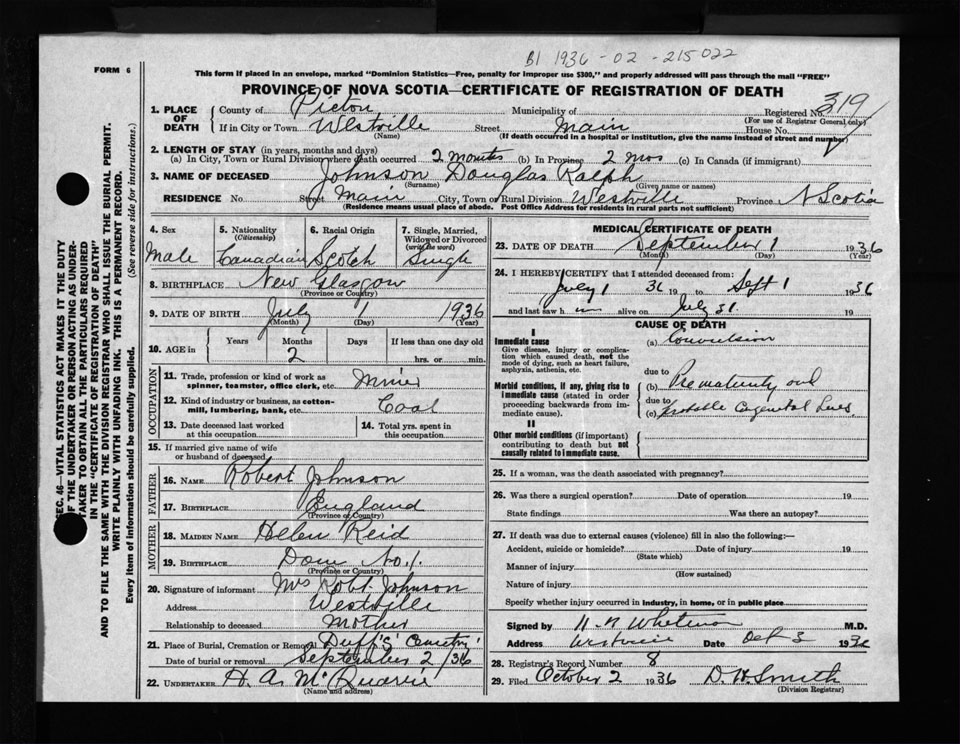 B1 1936 - 02 - 215022
FORM 6
This form if placed in an envelope, marked "Dominion Statistics—Free, penalty for improper use $300," and properly addressed will pass through the mail "FREE"
PROVINCE OF NOVA SCOTIA—CERTIFICATE OF REGISTRATION OF DEATH
SEC. 46—VITAL STATISTICS ACT MAKES IT THE DUTY
OF THE UNDERTAKER OR PERSON ACTING AS UNDER-
TAKER TO OBTAIN ALL THE PARTICULARS REQUIRED
IN THE "CERTIFICATE OF REGISTRATION OF DEATH"
AND TO FILE THE SAME WITH THE DIVISION REGISTRAR WHO SHALL ISSUE THE BURIAL PERMIT.
WRITE PLAINLY WITH UNFADING INK. THIS IS A PERMANENT RECORD.
Every item of information should be carefully supplied. (See reverse side for instructions.)
1. PLACE OF DEATH
County of Pictou Municipality of Registered No. 319
(For use of Registrar General only)
If in City or Town Westville Street Main House No.
(Name) (If death occurred in a hospital or institution, give the name instead of street and number)
2. LENGTH OF STAY (in years, months and days)
(a) In City, Town or Rural Division where death occurred 2 months (b) In Province 2 mos (c) In Canada (if immigrant)
3. NAME OF DECEASED Johnson Douglas Ralph
(Surname) (Given name or names)
RESIDENCE No. Street Main City, Town or Rural Division Westville Province N Scotia
(Residence means usual place of abode. Post Office Address for residents in rural parts not sufficient)
4. Sex Male
5. Nationality (Citizenship) Canadian
6. Racial Origin Scotch
7. Single, Married, Widowed or Divorced (write the word) Single
8. BIRTHPLACE New Glasgow
(Province or Country)
9. DATE OF BIRTH July 1 1936
(Month) (Day) (Year)
10. AGE in Years Months 2 Days If less than one day old
hrs. or min.
OCCUPATION
11. Trade, profession or kind of work as spinner, teamster, office clerk, etc. Miner
12. Kind of industry or business, as cotton-mill, lumbering, bank, etc. Coal
13. Date deceased last worked at this occupation
14. Total yrs. spent in this occupation
15. If married give name of wife or husband of deceased
FATHER
16. NAME Robert Johnson
17. BIRTHPLACE England
(Province or Country)
MOTHER
18. MAIDEN NAME Helen Reid
19. BIRTHPLACE Dom No. 1.
(Province or Country)
20. Signature of informant Mrs Robt Johnson
Address Westville
Relationship to deceased Mother
21. Place of Burial, Cremation or Removal Duff's Cemetry
Date of burial or removal September 2 /36
22. UNDERTAKER H. A. McQuarrie
(Name and address)
MEDICAL CERTIFICATE OF DEATH
23. DATE OF DEATH September 1 1936
(Month) (Day) (Year)
24. I HEREBY CERTIFY that I attended deceased from:
July 1 36 19 to Sept 1 1936
and last saw h im alive on July 31 19
CAUSE OF DEATH
I
Immediate cause
Give disease, injury or complication which caused death, not the mode of dying, such as heart failure, asphyxia, asthenia, etc.
(a) Convulsion
due to
Morbid conditions, if any, giving rise to immediate cause (stated in order proceeding backwards from immediate cause).
(b) Prematurity and
due to
(c) Probable Congenital Lues
II
Other morbid conditions (if important) contributing to death but not causally related to immediate cause.
25. If a woman, was the death associated with pregnancy?
26. Was there a surgical operation? Date of operation 19
State findings Was there an autopsy?
27. If death was due to external causes (violence) fill in also the following:—
Accident, suicide or homicide? Date of injury 19
(State which)
Manner of injury
(How sustained)
Nature of injury
Specify whether injury occurred in industry, in home, or in public place
Signed by H. A Whitman M.D.
Address Westville Date Oct 3 1936
28. Registrar's Record Number 8
29. Filed October 2 1936 D. W. Smith
(Division Registrar)